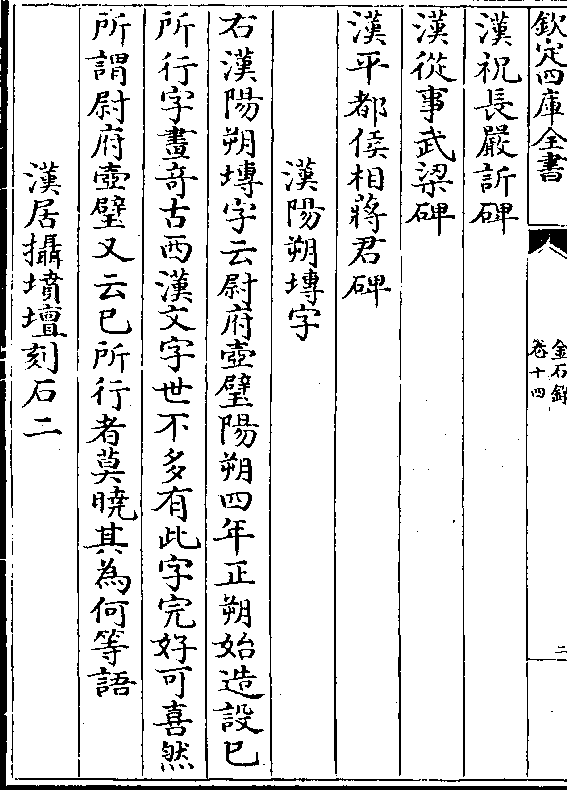 欽定四庫全書
金石錄
卷十四
二
漢祝長嚴訢碑
漢從事武梁碑
漢平都侯相蔣君碑
漢陽朔塼字
右漢陽朔塼字云尉府壺壁陽朔四年正朔始造設已
所行字畫奇古西漢文字世不多有此字完好可喜然
所謂尉府壺壁又云已所行者莫曉其為何等語
漢居攝墳壇刻石二